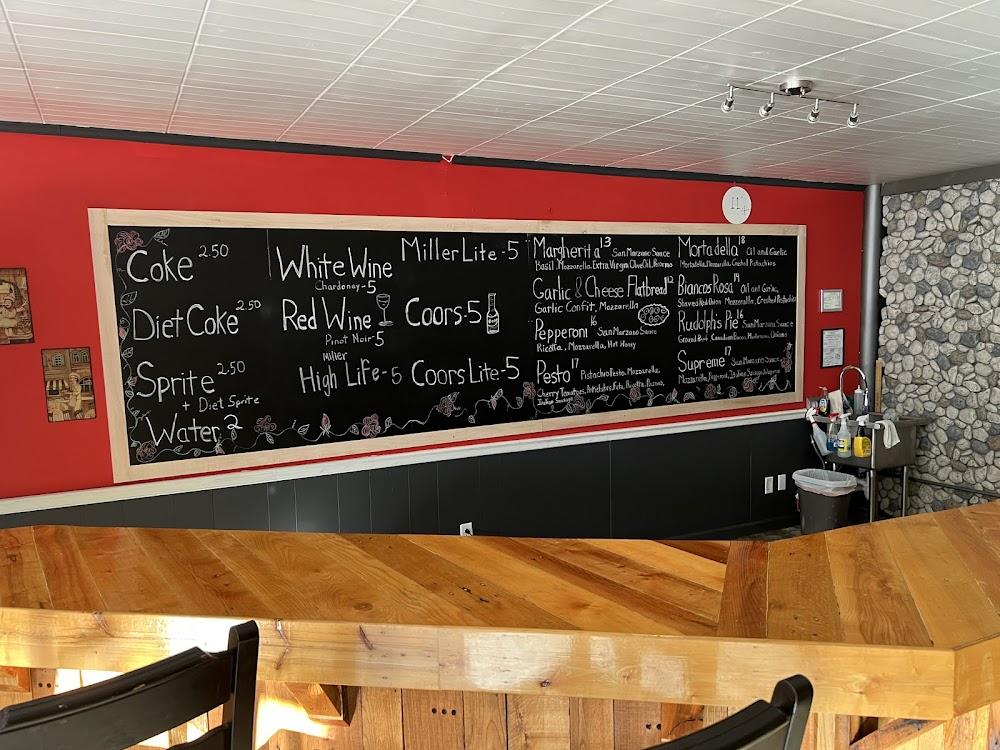 Coke 2.50
Diet Coke 2.50
Sprite 2.50
+ Diet Sprite
Water 2
White Wine
Chardonnay - 5
Red Wine
Pinot Noir - 5
Miller
High Life - 5
Miller Lite - 5
Coors - 5
Coors Lite - 5
Margherita 13 San Marzano Sauce
Basil, Mozzarella, Extra Virgin Olive Oil,
Garlic & Cheese Flatbread 12
Garlic Confit, Mozzarella
Pepperoni 16 San Marzano Sauce
Ricotta, Mozzarella, Hot Honey
Pesto 17 Pistachio Pesto, Mozzarella,
Cherry Tomatoes, Feta,
Italian Sausage
Mortadella 18 Oil and Garlic
Mortadella, Mozzarella, Crushed Pistachios
Biancos Rosa 14 Oil and Garlic,
Shaved Red Onion, Mozzarella, Crushed Pistachios
Rudolph's Pie 16 San Marzano Sauce
Ground Pork, Canadian Bacon, Mushrooms, Onions
Supreme 17 San Marzano Sauce,
Mozzarella, Pepperoni, Italian Sausage,